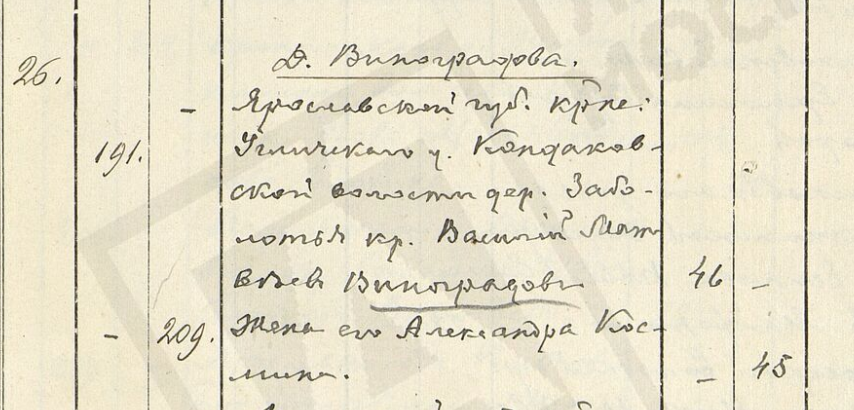 26.
Д. Виноградова.
- Ярославской губ. крне:
191. Угличскаго у. Кондаков-
ской волости дер. Забо-
лотья кр. Василій Мат
вѣевъ Виноградовъ 46 -
- 209. Жена его Александра Кос-
мина. - 45